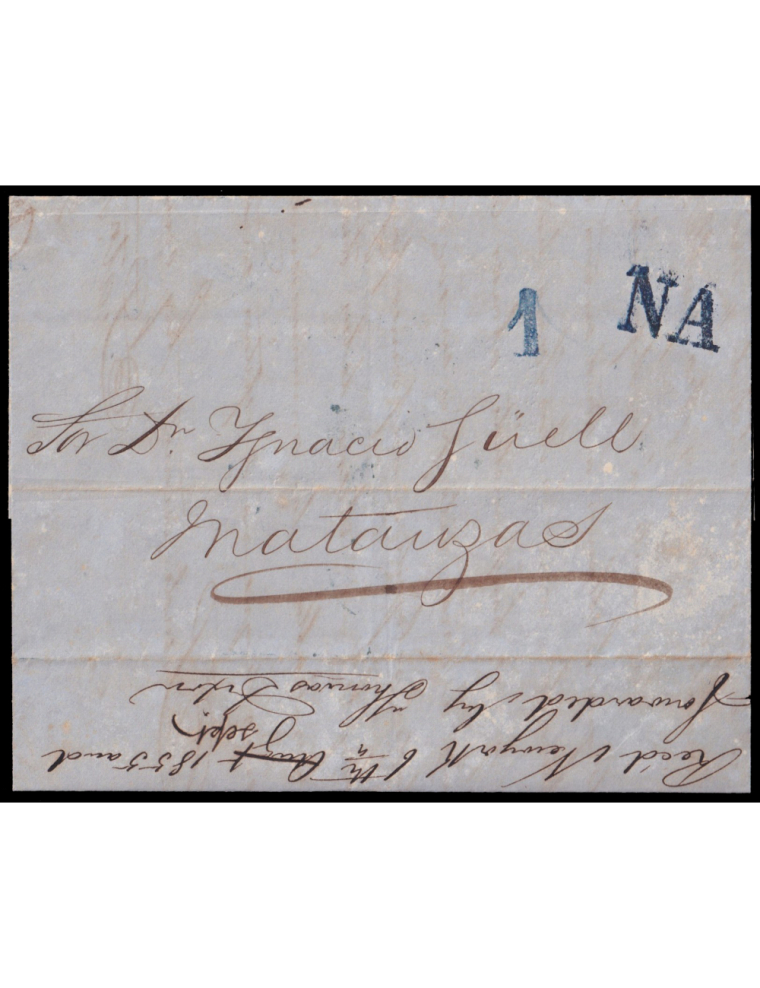 1 NA
Sor Dn Ygnacio Güell
Matanzas
Recd Newyork 6th Augt Sept. 1855 and
forwarded by Thomas Dixon